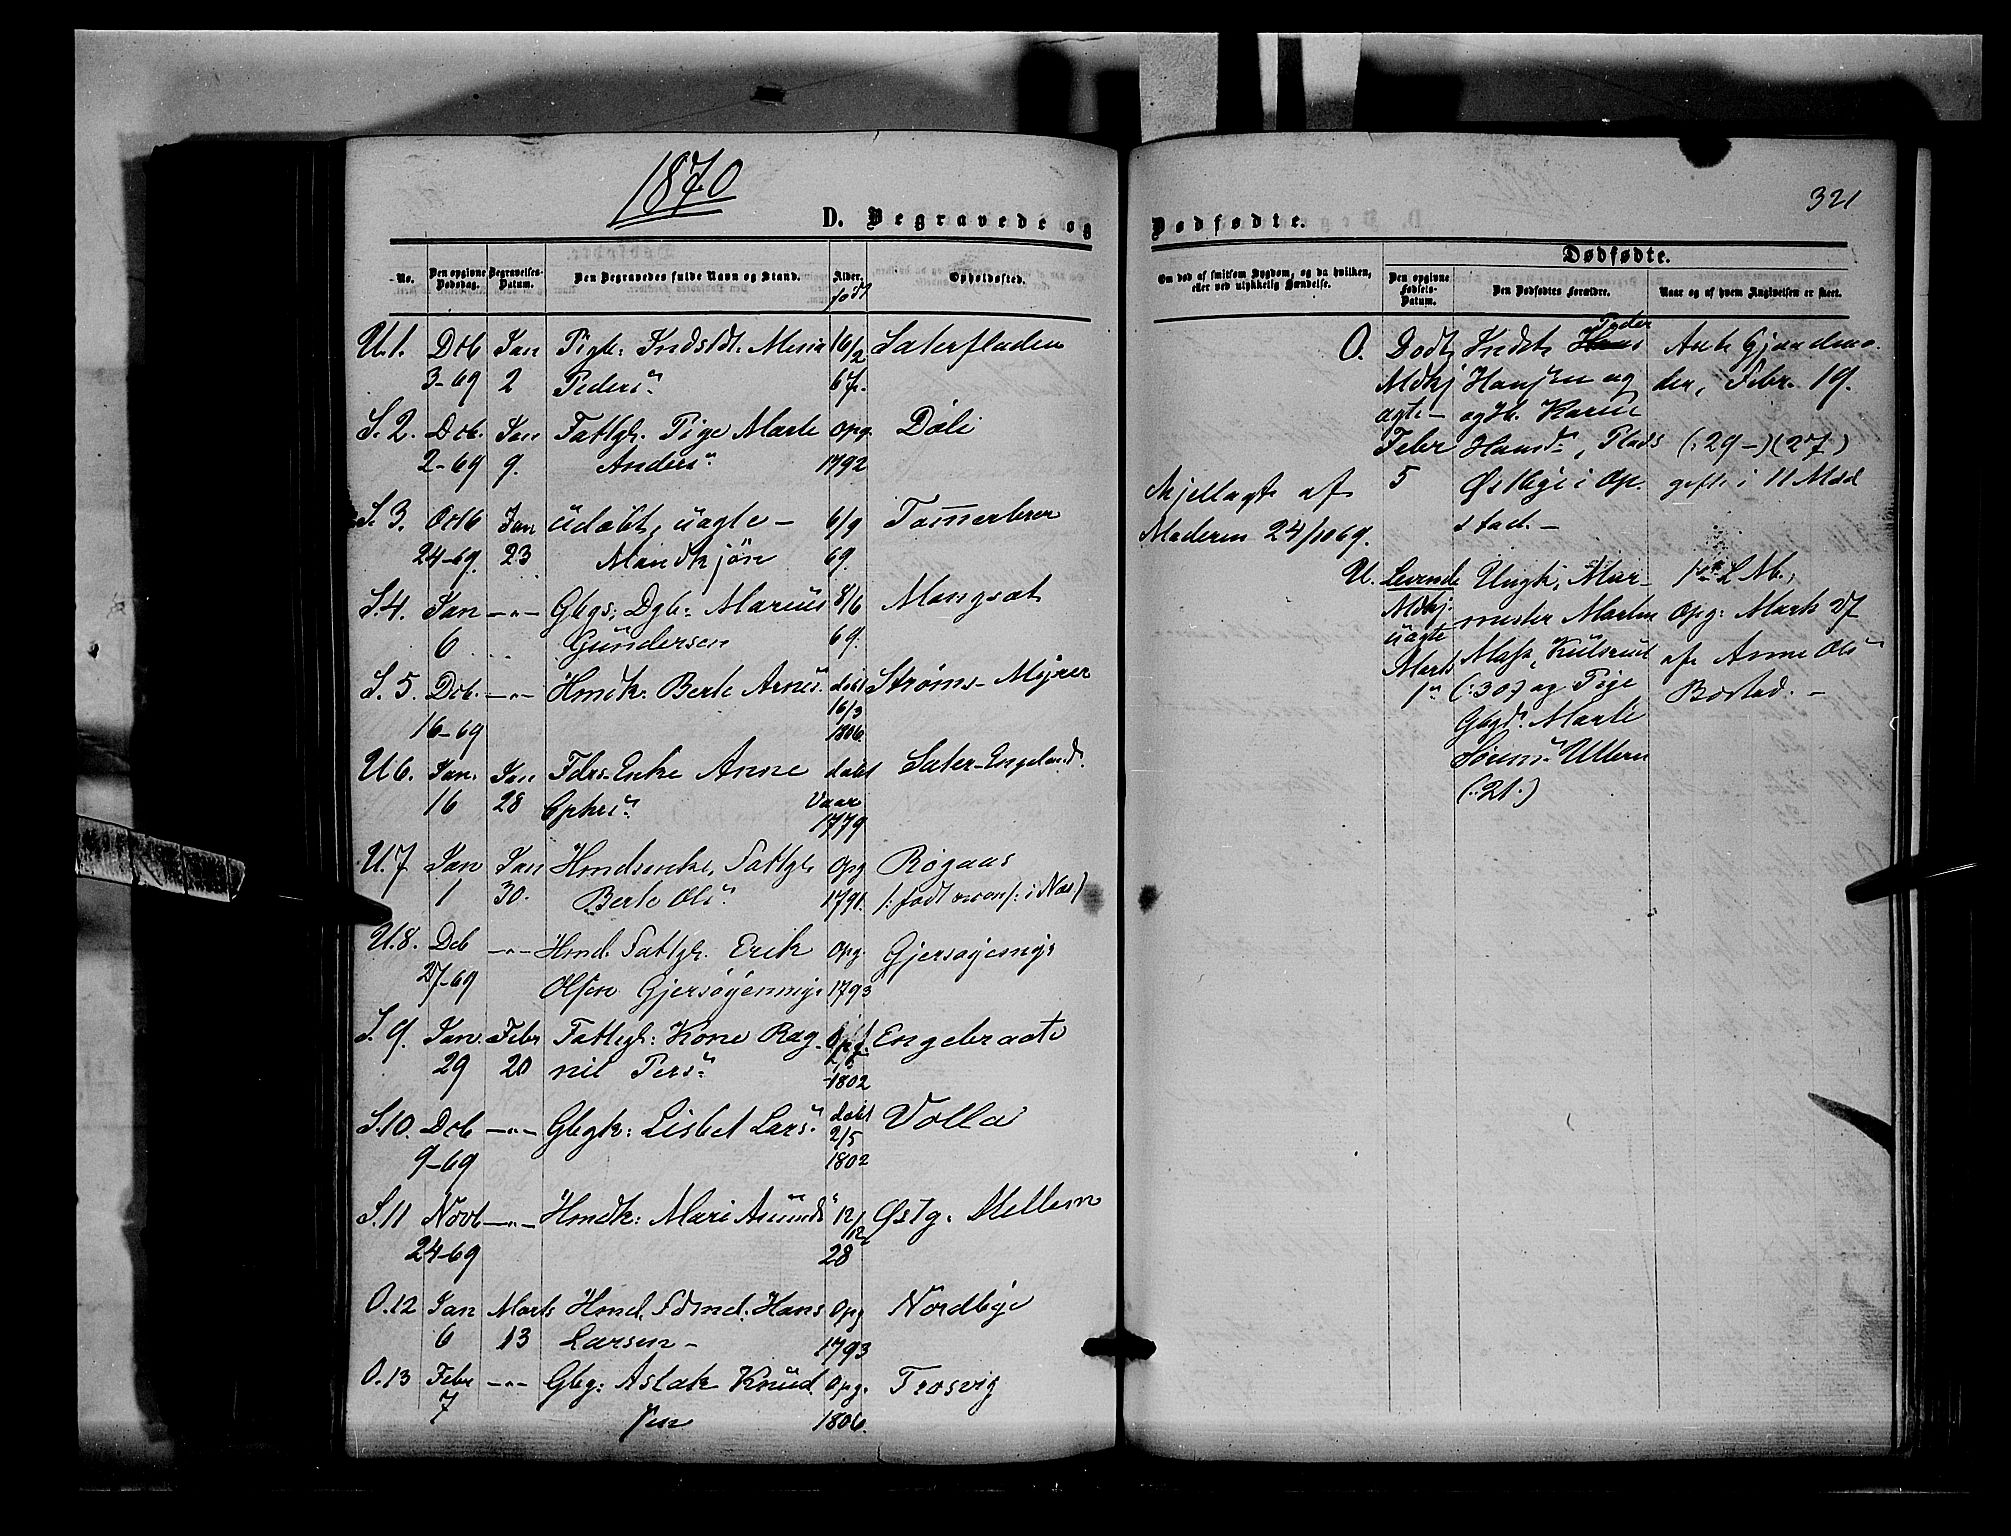 1870
D. Begravede og
No.
Den opgivne Dødsdag.
Begravelses-Datum.
Den Begravedes fulde Navn og Stand.
Alder.
født
Opholdssted.
U. 1. Deb Jan Pigb: Indsidt. 16/2 Sæterfladen
3-69 2 Peders 67.
S. 2. Deb. Jan Fattgl. Pige Marte opg. Døli
2-69 9. Anders 1792
S. 3. Octb Jan Udøbt, uægte- 6/9
24-69. 23 Mandkjøn 69.
S. 4. Jan -"- Gbgs: Dgb: Marius 8/6 Mangset
6 Gundersen 69.
S. 5. Deb. -"- Hmdk: Berte Arne døbt Strøms-Myrer
16-69 16/3
1806.
U 6. Jan. Jan Fdrs. Enke Anne døbt Sæter-Engelund.
16 28 Vaar
1779
U. 7 Jan Jan Hmdsenke, Fattgl. Opg Røgaas
1 30. Berte Ols 1791. /: født i Næs:/
U. 8. Deb -"- Hmd. Fattgl. Erik opg. Gjersøyenmyr
27-69 Olsen Gjersøyenmyr 1793
S. 9. Jan. Febr Fattigl: Kone Rag- Engebraate
29 20 nil Pers 1802
S. 10. Deb -"- Gbgk: Lisbet Lars døbt Volla
9-69 2/5
1802
S. 11 Novb -"- Hmdk: Mari Amunds 12/12 Østg. Mellem
24-69 28
O. 12 Jan Marts Hmd. Fdmd. Hans Opg Nordbye
6 13 Larsen- 1793
O. 13 Febr -"- Gbg: Aslak Knud Opg. Trosvig
7 sen 1806.
321
Dødfødte.
Om død af smitsom Sygdom, og da hvilken, eller ved ulykkelig Hændelse.
Dødfødte.
Den opgivne Fødsels-Datum.
Den Dødfødtes Forældre.
Naar og af hvem Angivelsen er skeet.
Peder
O. Dødt Indst: Hans Anh. Gjordemo-
Mdkj Hansen og der, Febr. 19.
ægte- Karen
Febr Hansd, Plads (:29-)(27)
5 i Op- gifte i 11
stad.-
Ihjellagt af
Moderen 24/10 69.
U. Levende Ungk, Mur-
Mdkj. mester Martin Opg: Marts 27
uægte Kulsrud af Anne Ols
Marts (:30:) og Pige Bostad.-
1 Gbgd. Marte
Ullern
(:21:)